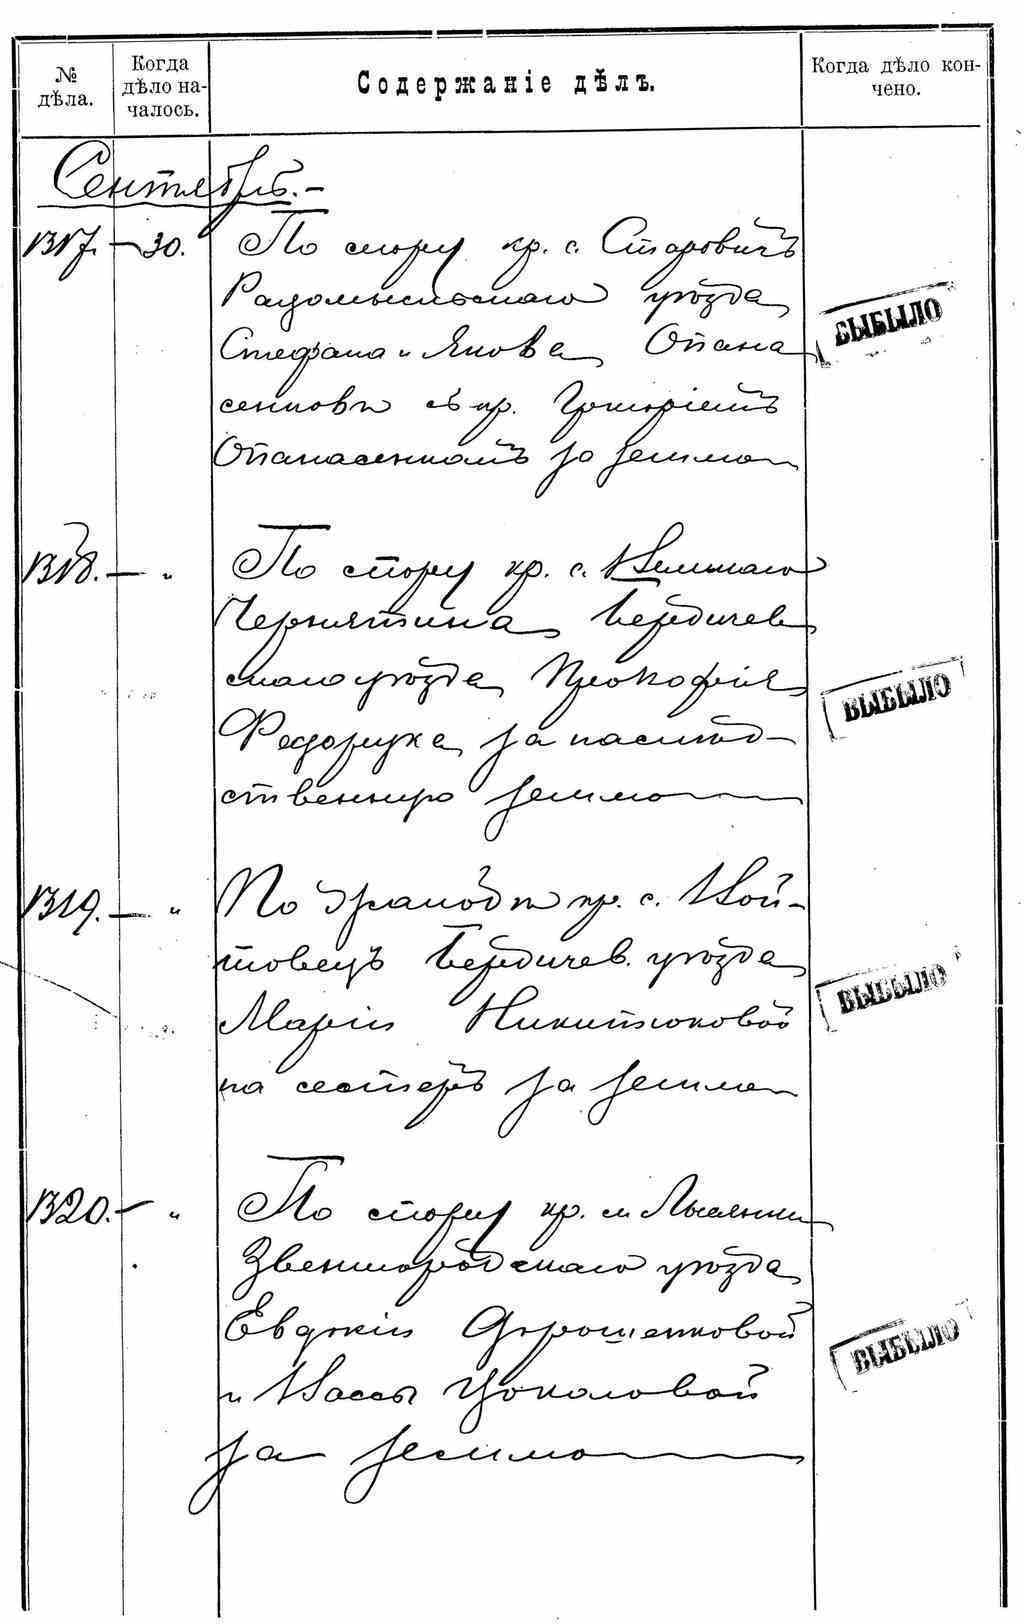 № дѣла.
Когда дѣло началось.
Содержаніе дѣлъ.
Когда дѣло кончено.
Сентябрь.-
1317. - 30. По спору кр. с. Старовичъ
Радомысльскаго уѣзда
Стефана и Якова Опана
сенковъ съ кр. Григоріемъ
Опанасенкомъ за землю
ВЫБЫЛО
1318. - " По спору кр. с. Великаго
Чернятина Бердичев
скаго уѣзда Прокофія
Федорука за наслѣд-
ственную землю
ВЫБЫЛО
1319. - " По жалобѣ кр. с. Вой-
товецъ Бердичев. уѣзда
Маріи Никитюковой
на сестеръ за землю
ВЫБЫЛО
1320. - " По спору кр. м. Лысянки
Звенигородскаго уѣзда
Евдокіи Дорошенковой
и Вассы
за землю
ВЫБЫЛО